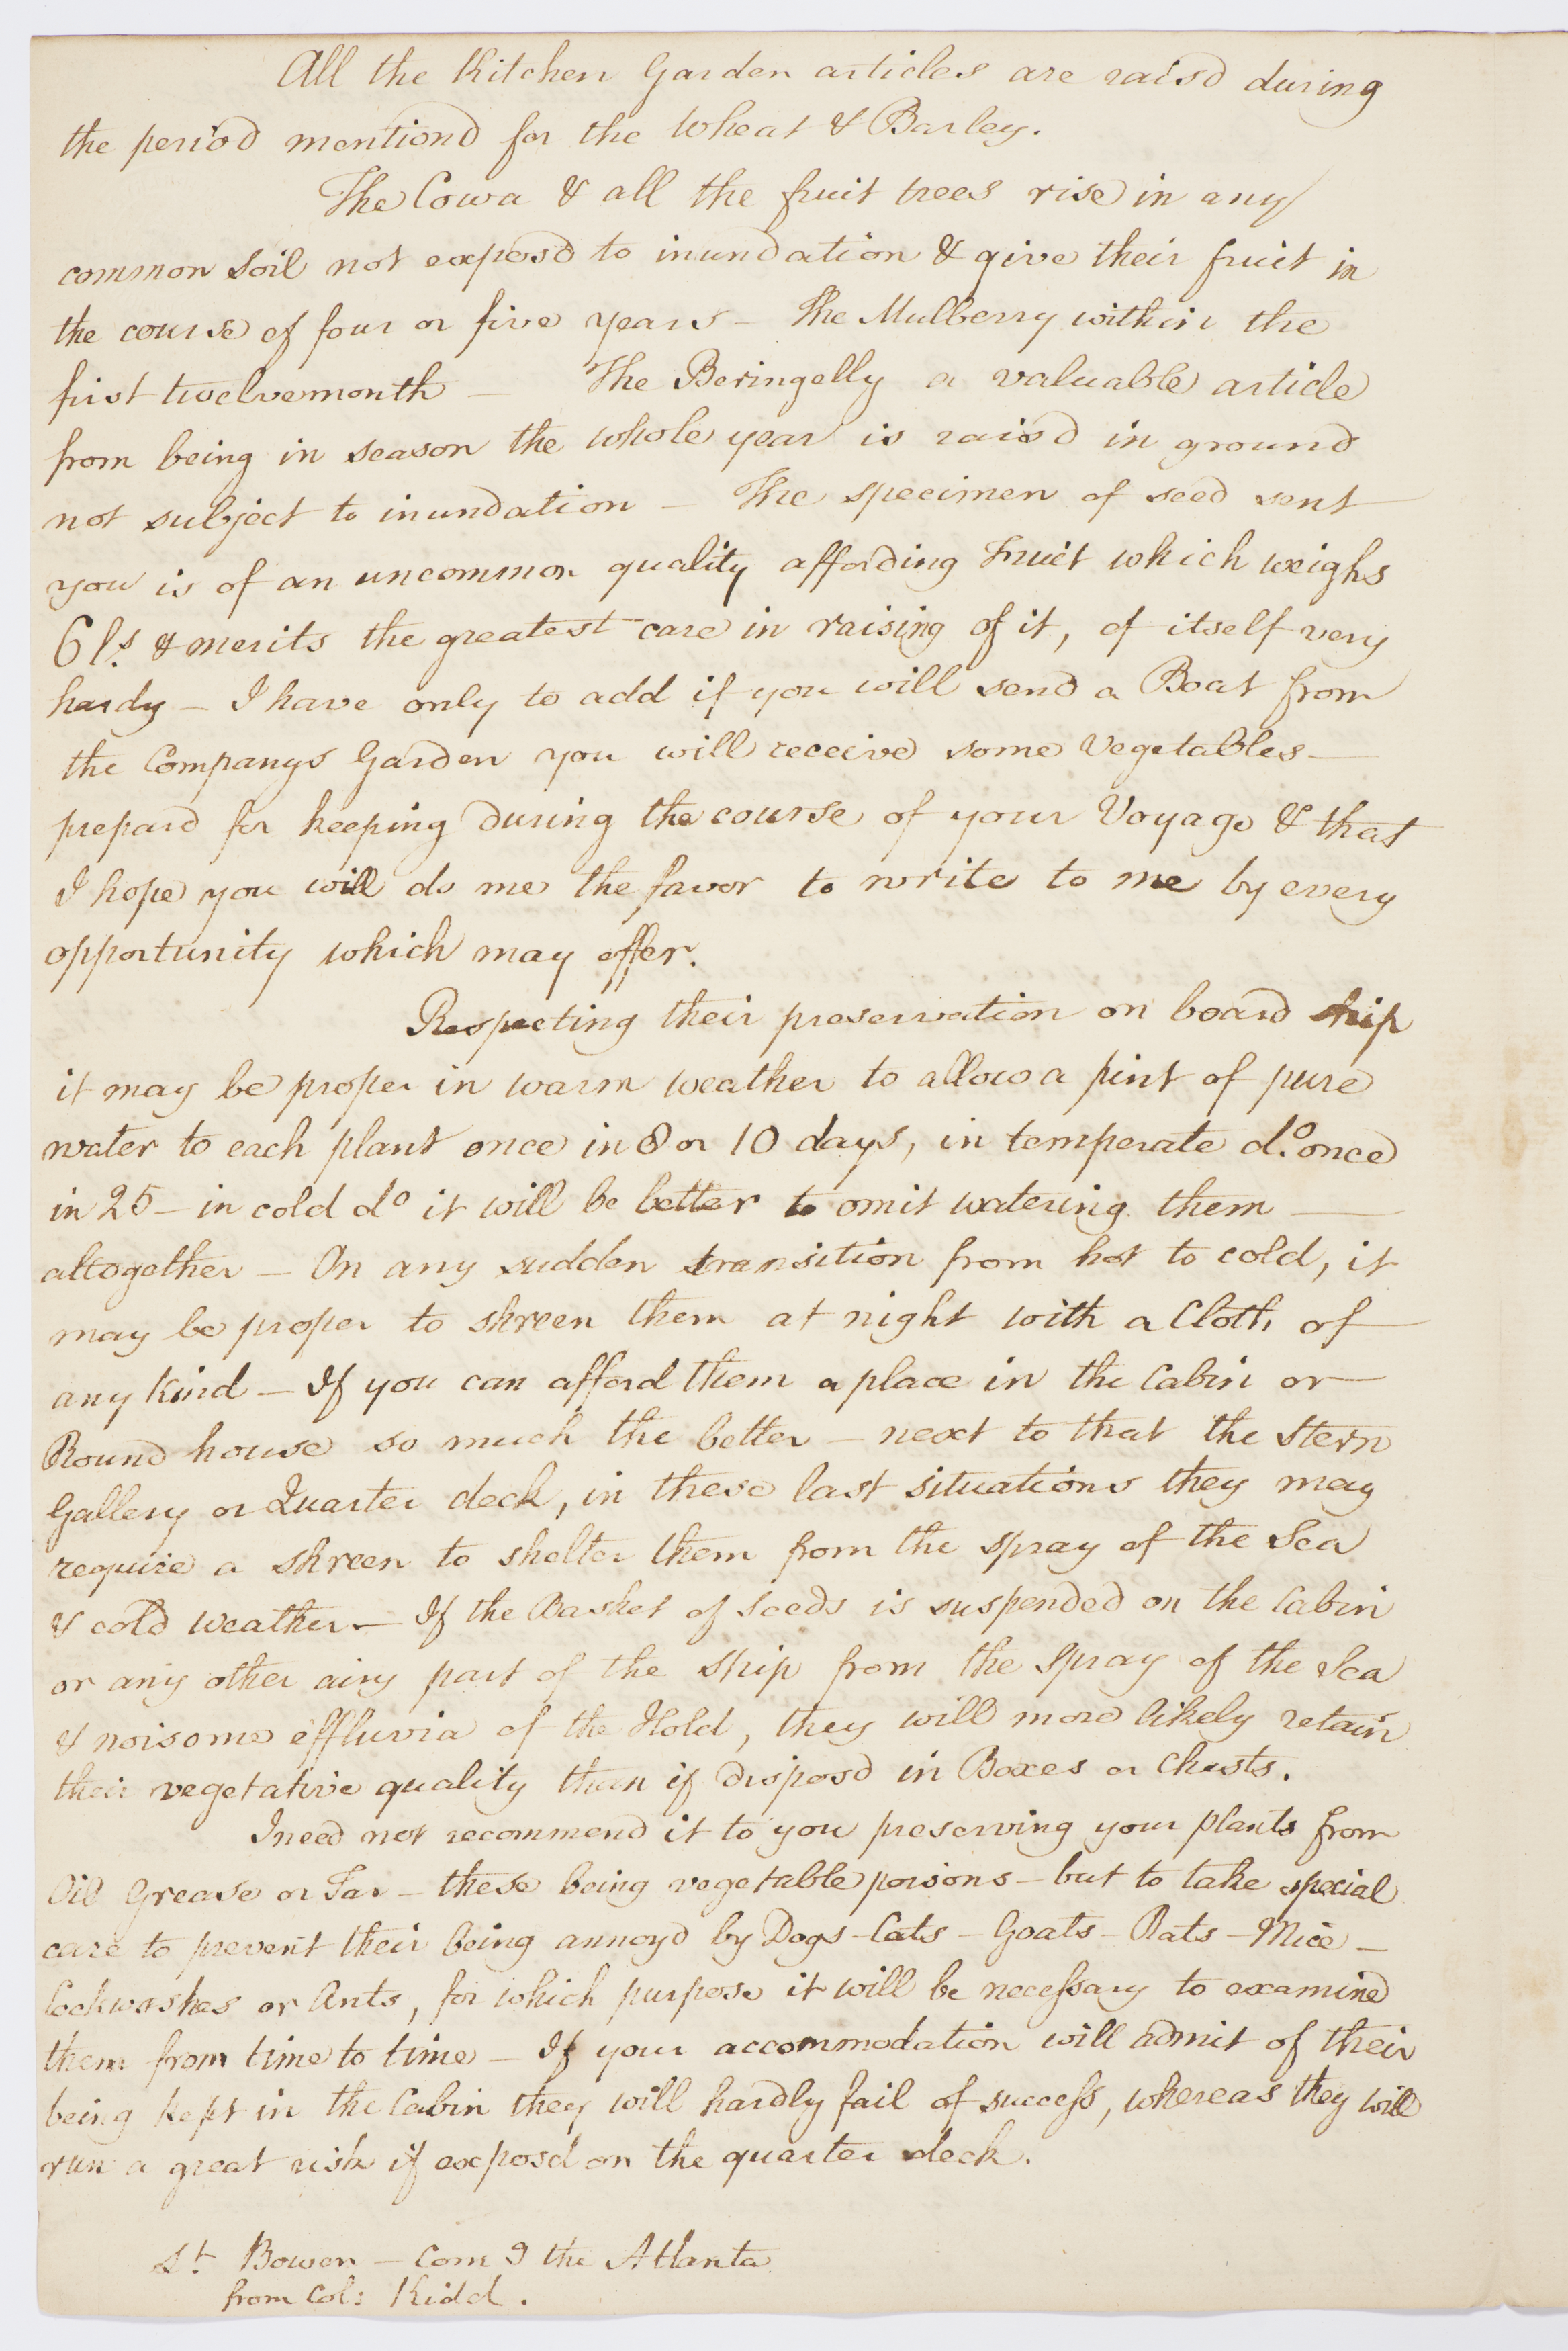 All the Kitchen Garden articles are raisd during
the period mentiond for the Wheat & Barley.
The Cowa & all the fruit trees rise in any
common soil not exposd to inundation & give their fruit in
the course of four or five years - The Mulberry within the
first twelvemonth - The Beringelly a valuable article
from being in season the whole year is raisd in ground
not subject to inundation - The specimen of seed sent
you is of an uncommon quality affording Fruit which weighs
6 ls. & merits the greatest care in raising of it, of itself very
hardy - I have only to add if you will send a Boat from
the Companys Garden you will receive some Vegetables -
prepard for keeping during the course of your Voyage & that
I hope you will do me the favor to write to me by every
opportunity which may offer.
Respecting their preservation on board ship
it may be proper in warm weather to allow a pint of pure
water to each plant once in 8 or 10 days, in temperate do. once
in 25 - in cold do it will be better to omit watering them -
altogether - On any sudden transition from hot to cold, it
may be proper to skreen them at night with a Cloth of
any kind - If you can afford them a place in the Cabin or
Round house so much the better - next to that the Stern
Gallery or Quarter deck, in these last situations they may
require a skreen to shelter them from the spray of the Sea
& cold weather - If the Basket of seeds is suspended on the Cabin
or any other airy part of the ship from the spray of the Sea
& noisome effluvia of the Hold, they will more likely retain
their vegetative quality than if disposd in Boxes or Chests.
I need not recommend it to you preserving your plants from
Oil Grease or Tar - these being vegetable poisons - but to take special
care to prevent their being annoyd by Dogs - Cats - Goats - Rats - Mice -
Cockwashes or Ants, for which purpose it will be necessary to examine
them from time to time - If your accommodation will admit of their
being kept in the Cabin they will hardly fail of success, whereas they will
run a great risk if exposd on the quarter deck.
Lt. Bowen - Com g the Atlanta
from Col: Kidd.